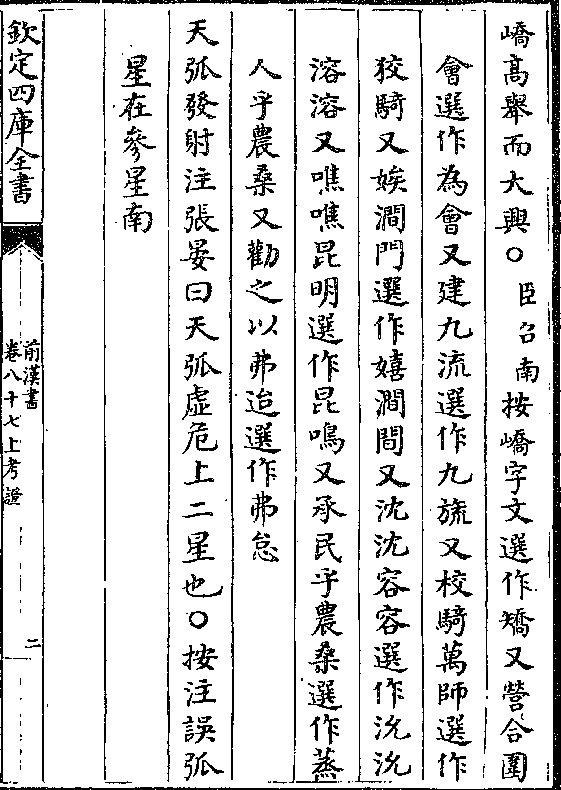 嶠髙舉而大興○臣召南按嶠字文選作矯又營合圍
會選作為㑹又建九流選作九旒又校騎萬師選作
狡騎又娭澗門選作嬉澗間又沈沈容容選作沇沇
溶溶又噍噍昆明選作昆鳴又承民乎農桑選作蒸
人乎農桑又勸之以弗迨選作弗怠
天弧發射注張晏曰天弧虛危上二星也○按注誤弧
星在參星南
欽定四庫全書
前漢書
卷八十七上考證
二